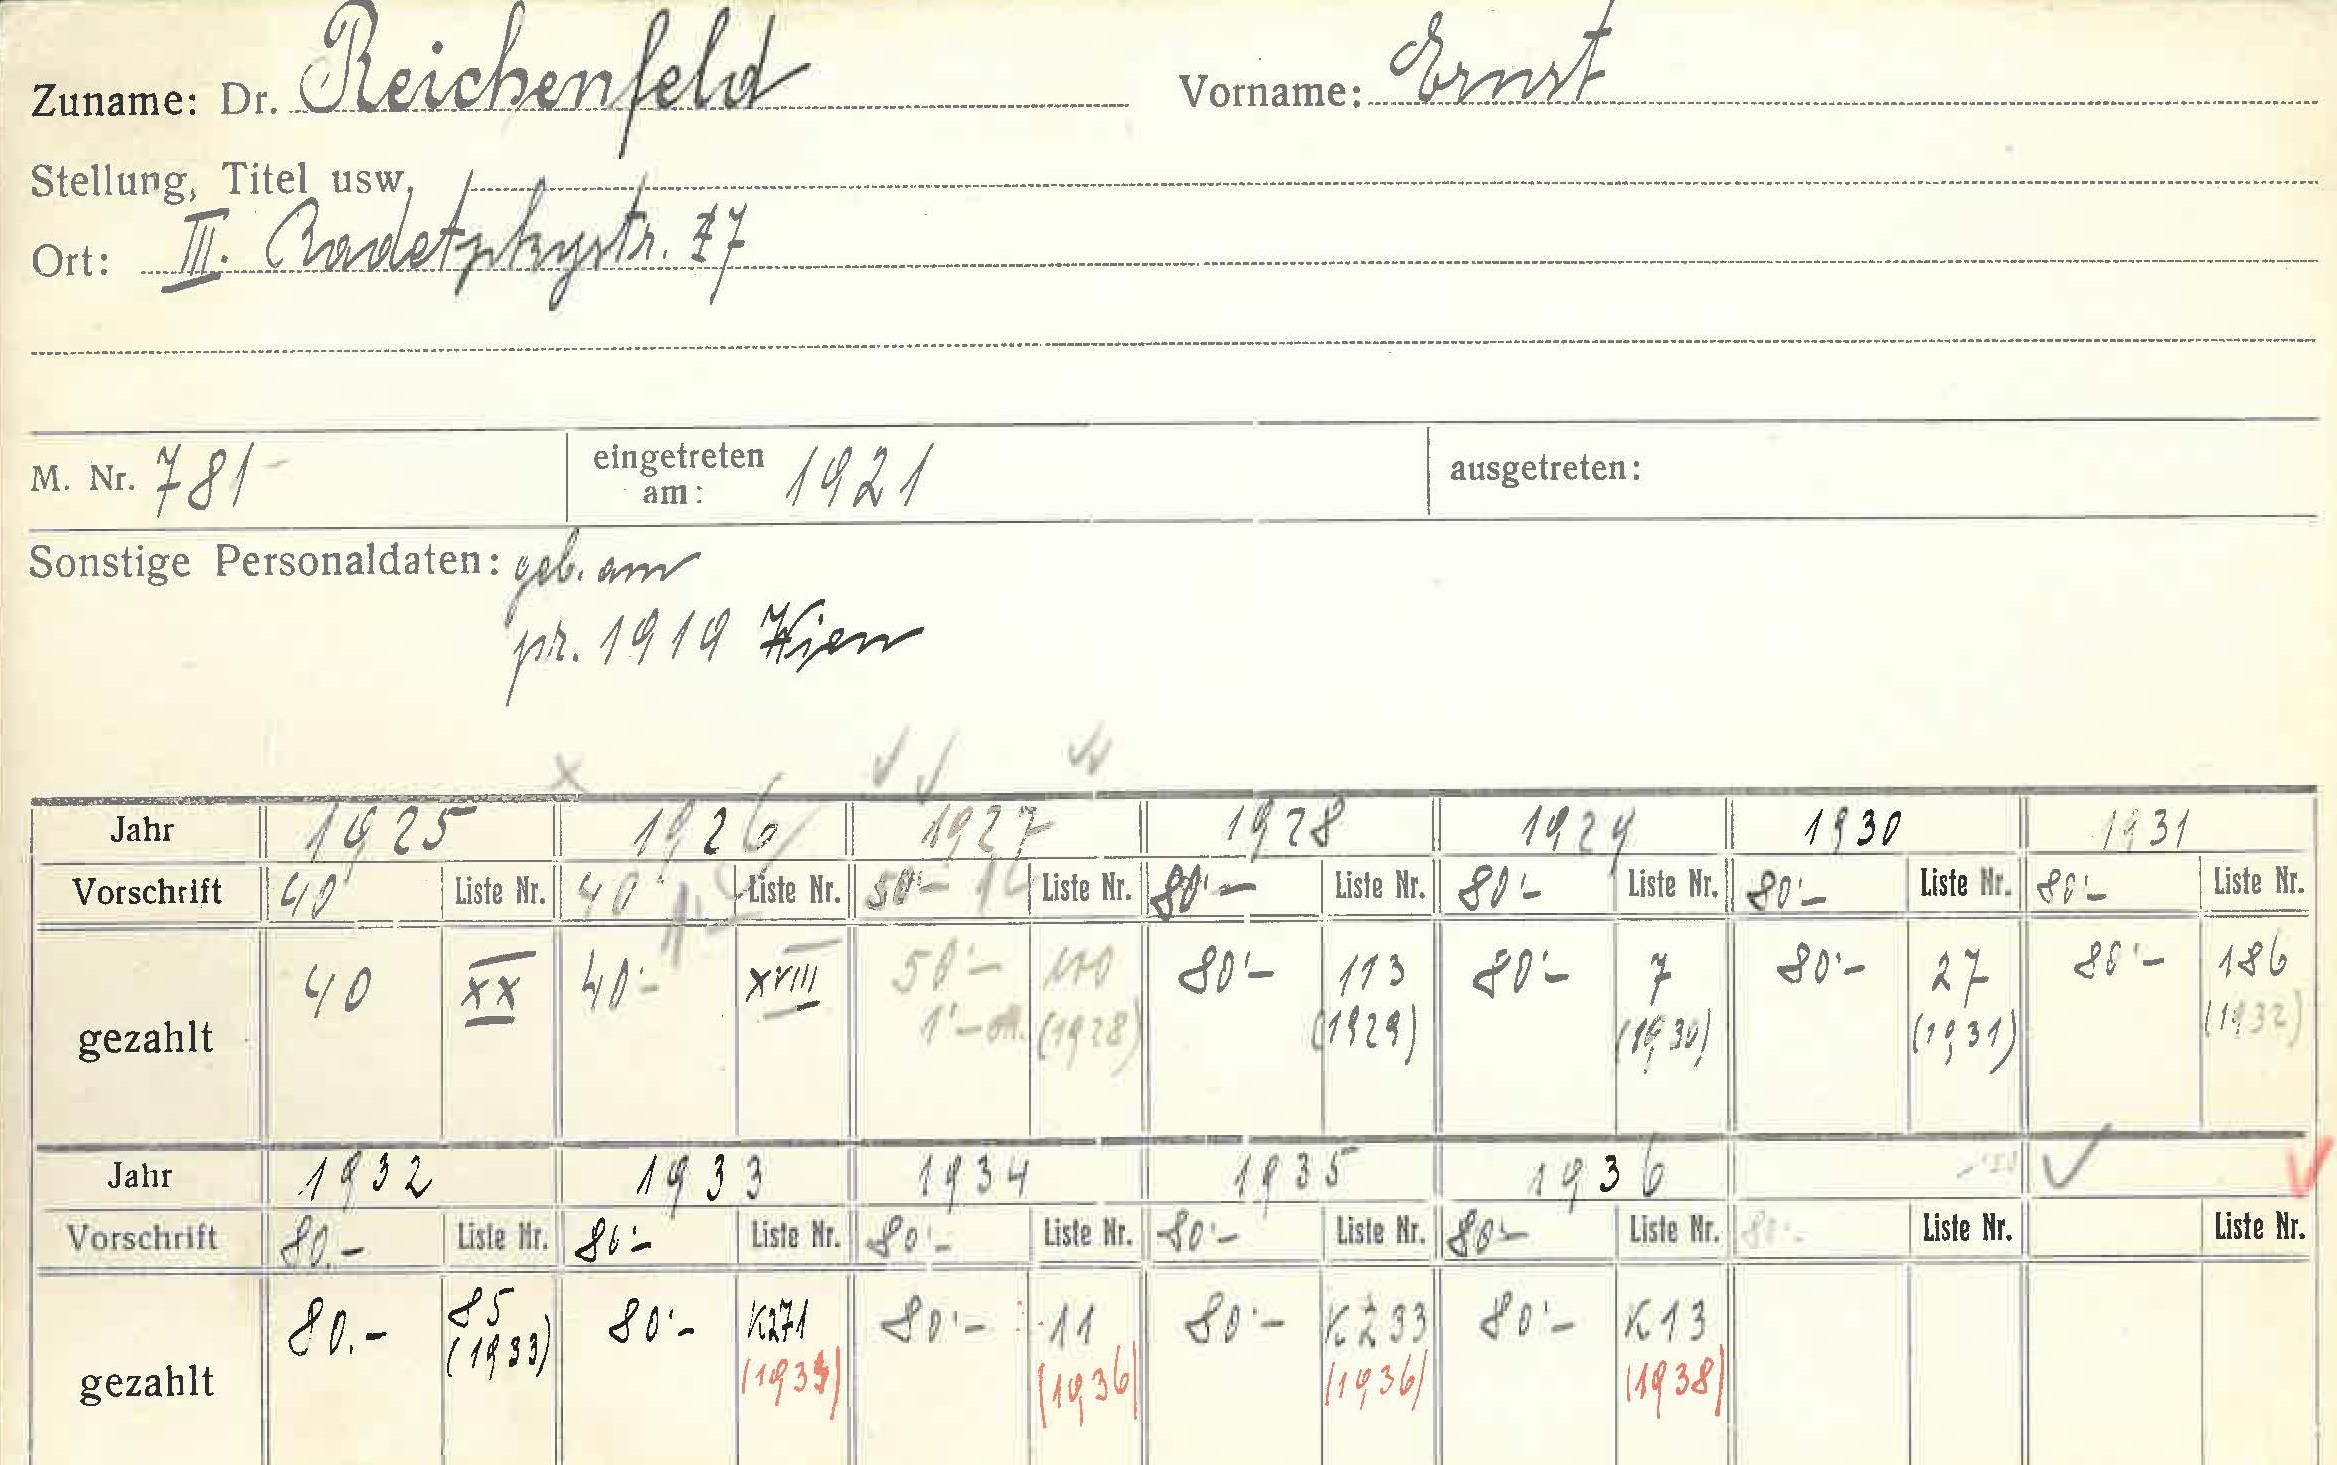 Zuname: Dr. Reichenfeld Vorname: Ernst
Stellung, Titel usw.
Ort: III. Radetzkystr. 27
M. Nr. 781 eingetreten am: 1921 ausgetreten:
Sonstige Personaldaten: geb. am
pr. 1919 Wien
Jahr 1925 1926 1927 1928 1929 1930 1931
Vorschrift 40 Liste Nr. 40 Liste Nr. 50·– Liste Nr. 80·– Liste Nr. 80·– Liste Nr. 80·– Liste Nr. 80·– Liste Nr.
gezahlt 40 XX 40·– XVIII 50·– 80·– 113 80·– 7 80·– 27 80·– 186
1·– (1928) (1929) (1930) (1931) (1932)
Jahr 1932 1933 1934 1935 1936
Vorschrift 80.– Liste Nr. 80·– Liste Nr. 80·– Liste Nr. 80·– Liste Nr. 80·– Liste Nr. 80·– Liste Nr. Liste Nr.
gezahlt 80.– 85 80·– K271 80·– 11 80·– K233 80·– K13
(1933) (1936) (1936) (1938)